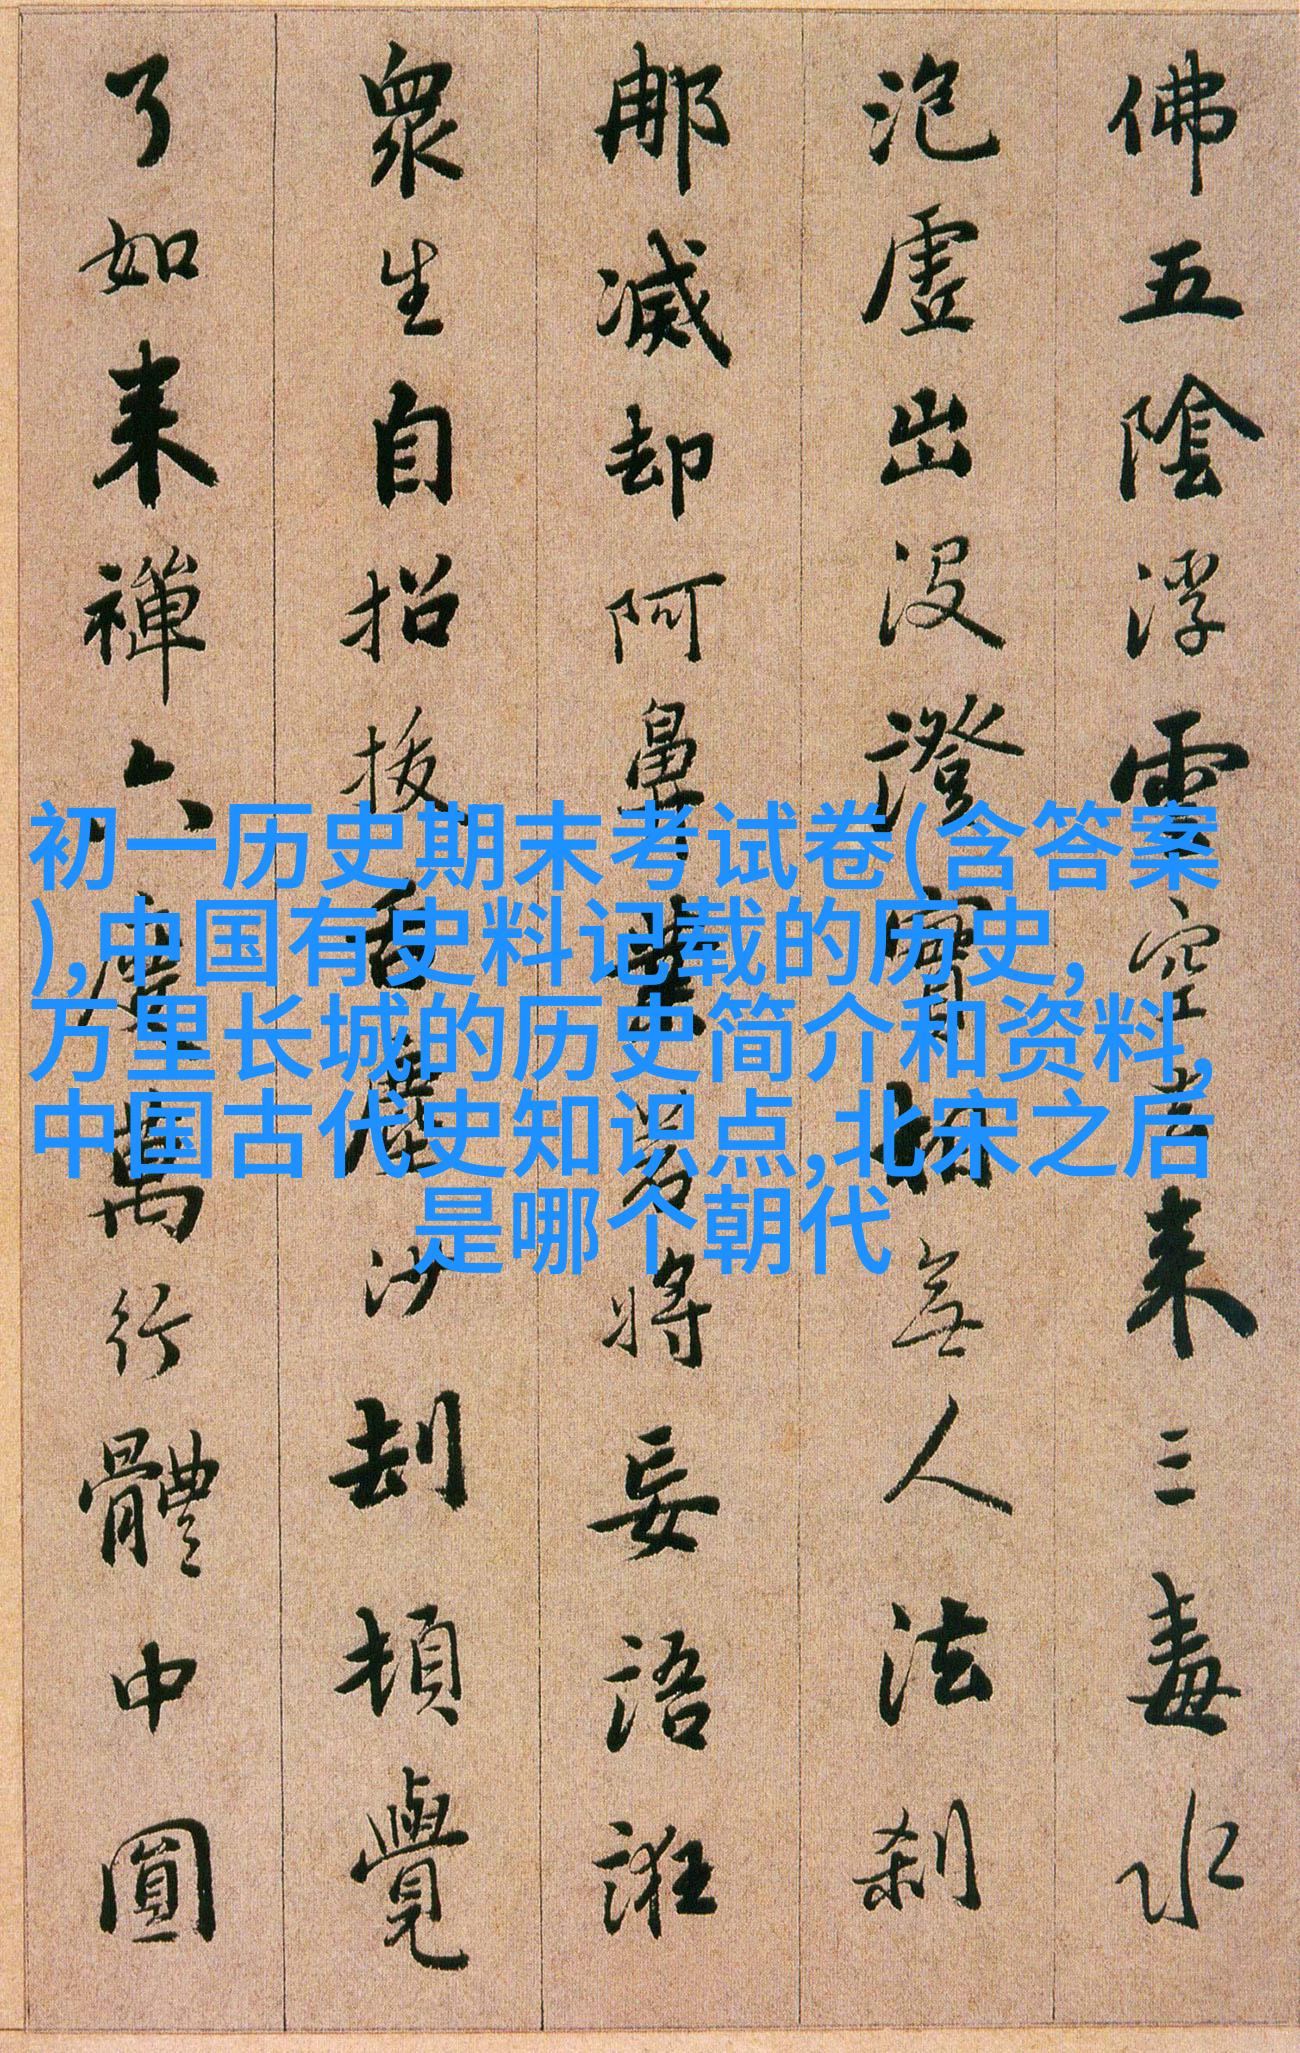 佛五陰浮雲空去来三毒水
泡虚出没證實相無人法刹
那滅却阿鼻業若將妄語誑
衆生自招拔舌塵沙刦頓覺
了如来禪六度萬行體中圓
初一历史期末考试卷(含答案
),中国有史料记载的历史,
万里长城的历史简介和资料,
中国古代史知识点,北宋之后
是哪个朝代